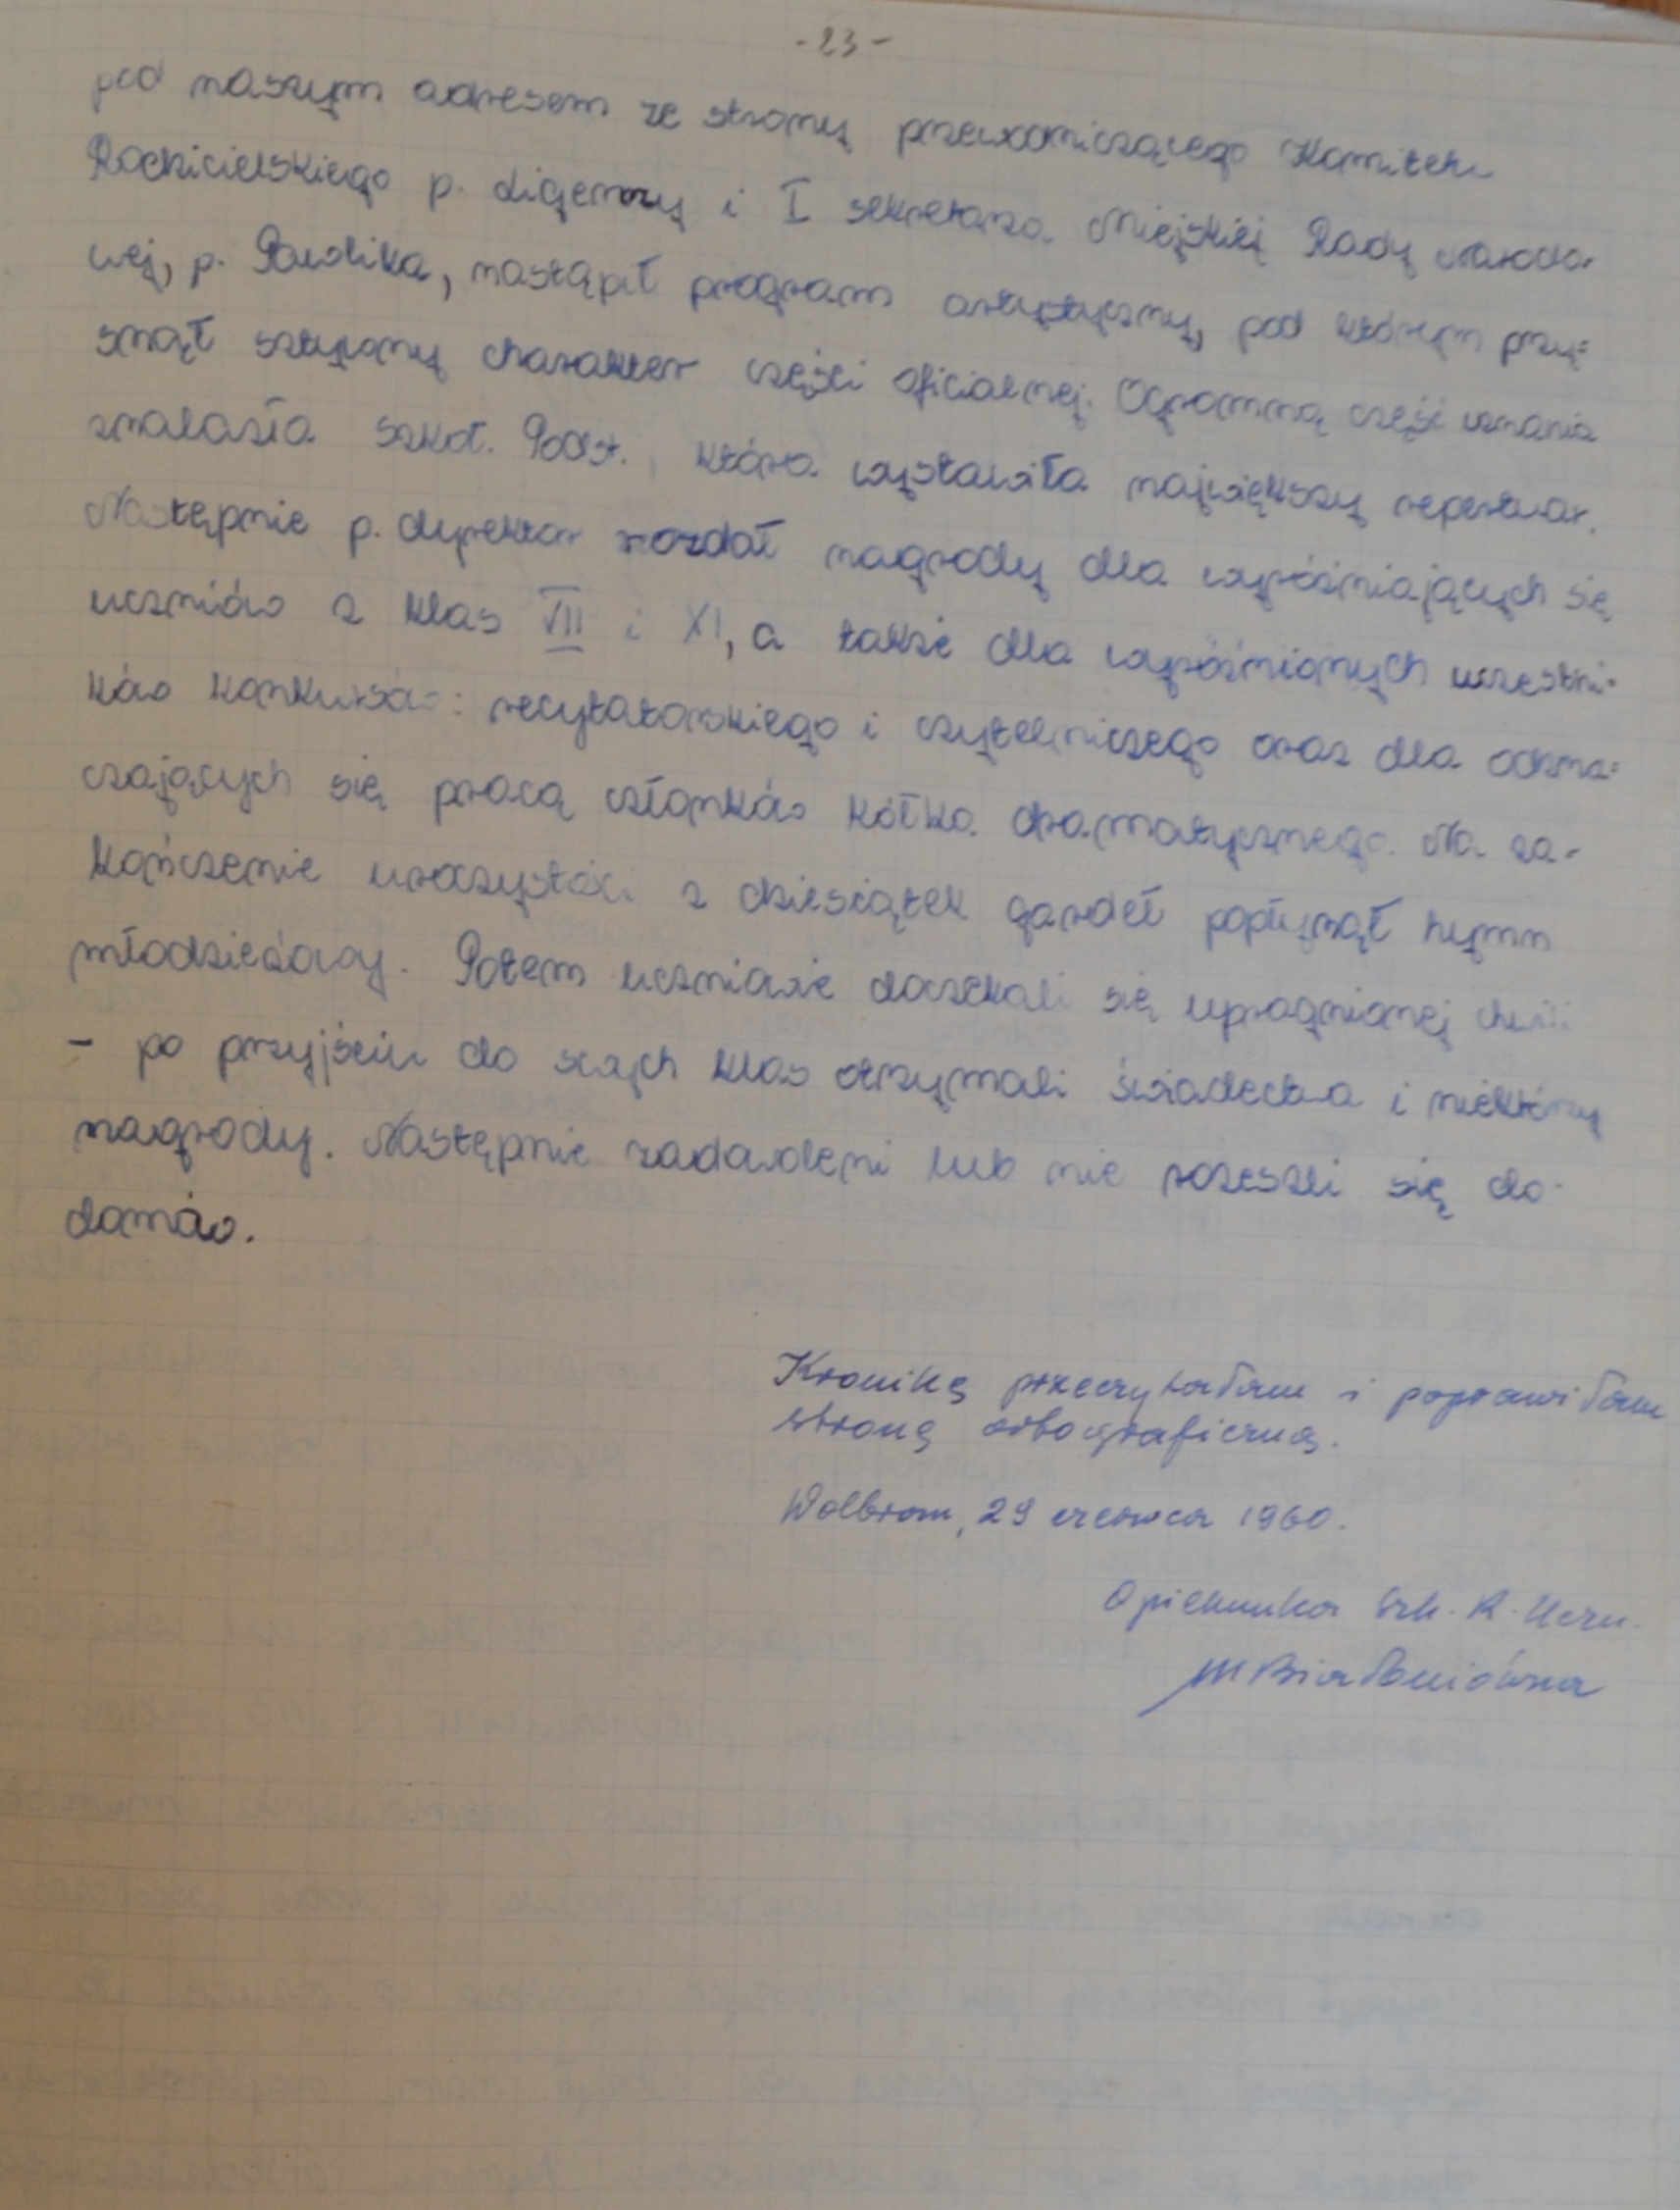 - 23 -
pod naszym adresem ze strony przewodniczącego Komitetu
Rodzicielskiego p. Ligenzy i I sekretarza Miejskiej Rady Narodo-
wej, p. Pawlika, nastąpił program artystyczny, pod którym prys=
snął sztywny charakter części oficialnej. Ogromną część uznania
znalazła szkoł. Podst., która wystawiła największy repertuar.
Następnie p. dyrektor rozdał nagrody dla wyróżniających się
uczniów z klas VII i XI, a także dla wyróżnionych uczestni-
ków konkursów: recytatorskiego i czytelniczego oraz dla odzna=
czających się pracą członków kółka dramatycznego. Na za-
kończenie uroczystości z dziesiątek gardeł popłynął hymn
młodzieżowy. Potem uczniowie doczekali się upragnionej chwili
- po przyjściu do swych klas otrzymali świadectwa i niektórzy
nagrody. Następnie zadowoleni lub nie rozeszli się do
domów.
Kronikę przeczytałam i poprawiłam
stronę ortograficzną.
Wolbrom, 29 czerwca 1960.
Opiekunka Szk. K. Uczn.
M Białoniówna